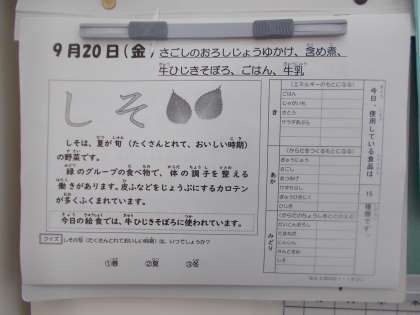 9月20日(金) さごしのおろしじょうゆかけ、含め煮、
牛ひじきそぼろ、ごはん、牛乳
しそ
しそは、夏が旬(たくさんとれて、おいしい時期)
の野菜です。
緑のグループの食べ物で、体の調子を整える
働きがあります。皮ふなどをじょうぶにするカロテン
が多くふくまれています。
今日の給食では、牛ひじきそぼろに使われています。
クイズ しその旬(たくさんとれて、おいしい時期)は、いつでしょうか?
①春 ②夏 ③冬
今日、使用している食品は 15 種類です。
(エネルギーのもとになる)
き
ごはん
じゃがいも
さとう
サラダあぶら
(からだをつくるもとになる)
あか
ぎゅうにゅう
さごし
ひじき
(からだのちょうしをととのえる)
みどり
だいこんおろし
たまねぎ
にんじん
しそ